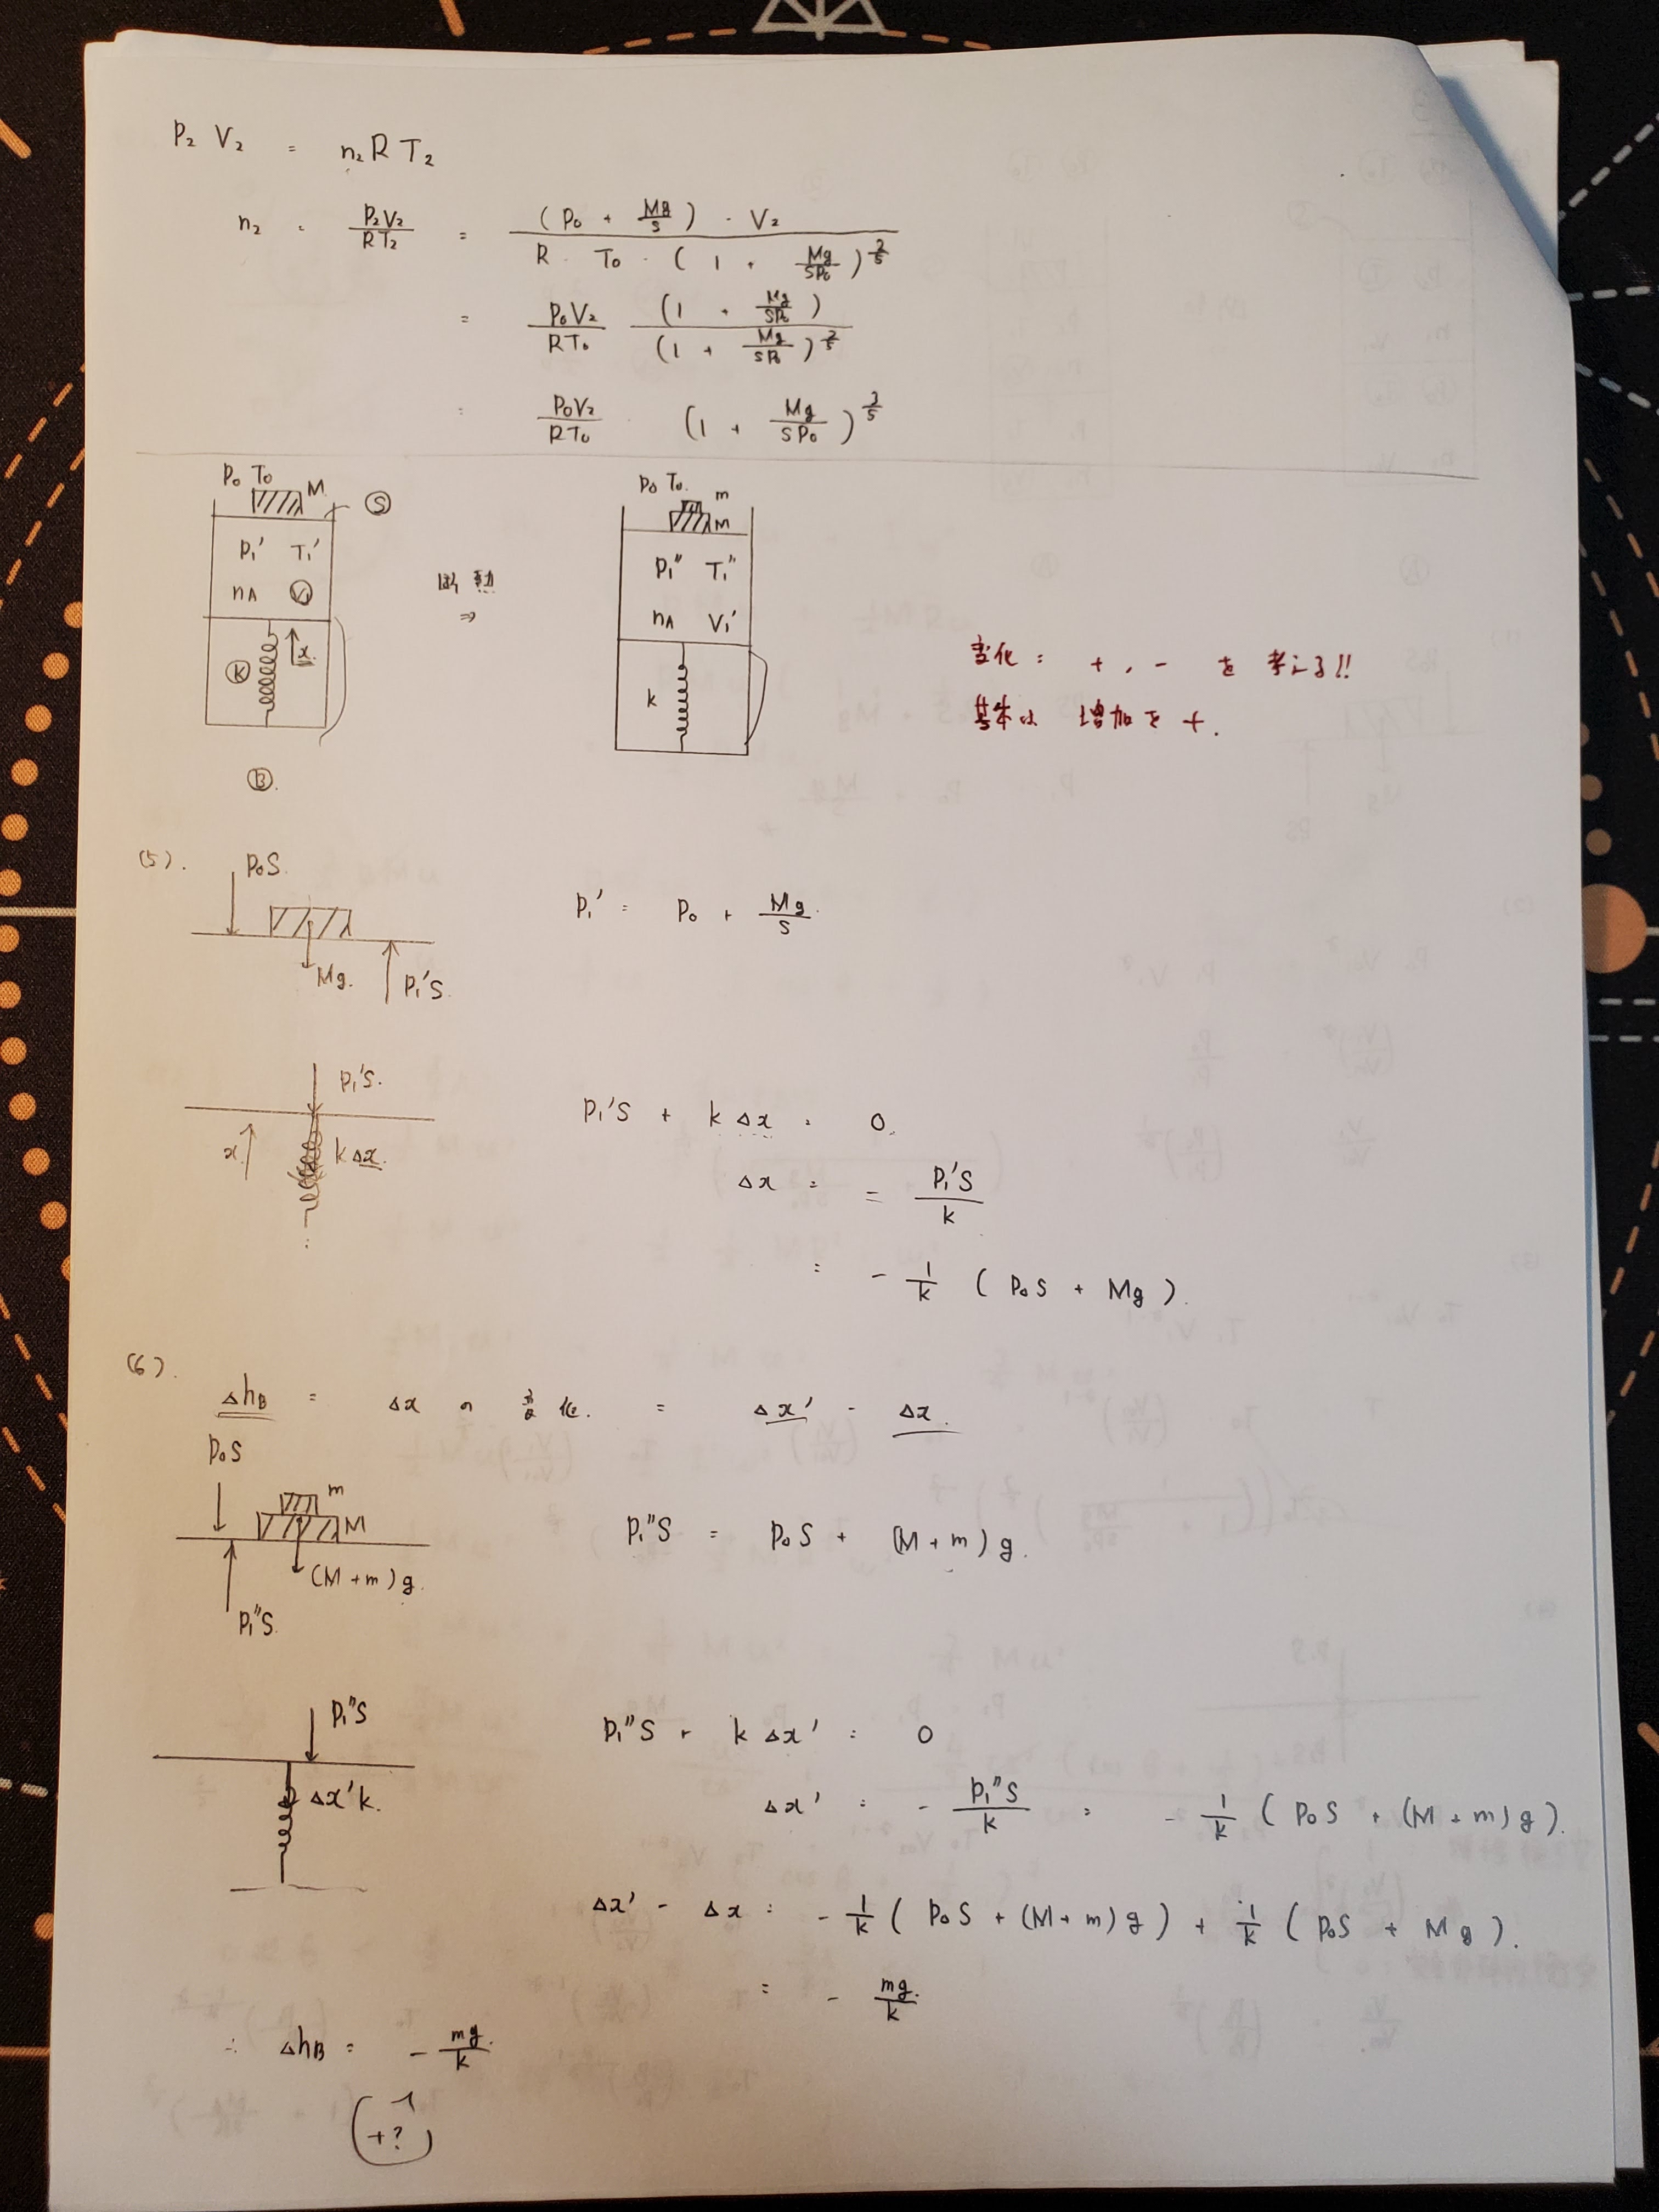 P₂ V₂ = n₂ R T₂
n₂ = P₂V₂/RT₂ = (P₀ + Mg/S) · V₂ / R · T₀ · (1 + Mg/SP₀)^(2/5)
= P₀V₂/RT₀ (1 + Mg/SP₀) / (1 + Mg/SP₀)^(2/5)
= P₀V₂/RT₀ (1 + Mg/SP₀)^(3/5)
P₀ T₀ M Ⓢ
P₁' T₁'
n_A V₁
ⓚ x
Ⓑ
断熱
⇒
P₀ T₀ m
M
P₁'' T₁''
n_A V₁'
k
変化 : +, - を 考える!!
基本は 増加を +.
(5).
P₀S
Mg.
P₁'S.
P₁' = P₀ + Mg/S.
P₁'S.
x
kΔx.
P₁'S + kΔx = 0.
Δx = - P₁'S/k
= - 1/k (P₀S + Mg).
(6).
Δh_B = Δx の 変化. = Δx' - Δx.
P₀S
m
M
(M+m)g.
P₁''S.
P₁''S = P₀S + (M+m)g.
P₁''S
Δx'k.
P₁''S + kΔx' = 0
Δx' = - P₁''S/k = - 1/k (P₀S + (M+m)g).
Δx' - Δx = - 1/k (P₀S + (M+m)g) + 1/k (P₀S + Mg).
= - mg/k.
∴ Δh_B = - mg/k.
(+?)